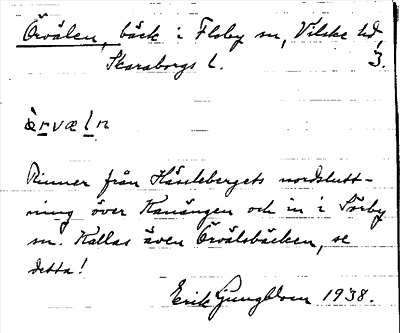 Örvålen, bäck i Floby sn, Vilske hd,
Skaraborgs l. 3.
ɷ̀rvæln
Rinner från Hässlebergets nordslutt-
ning över Kanängen och in i Sörby
sn. Kallas även Örvålsbäcken, se
detta!
Erik Ljungblom 1938.